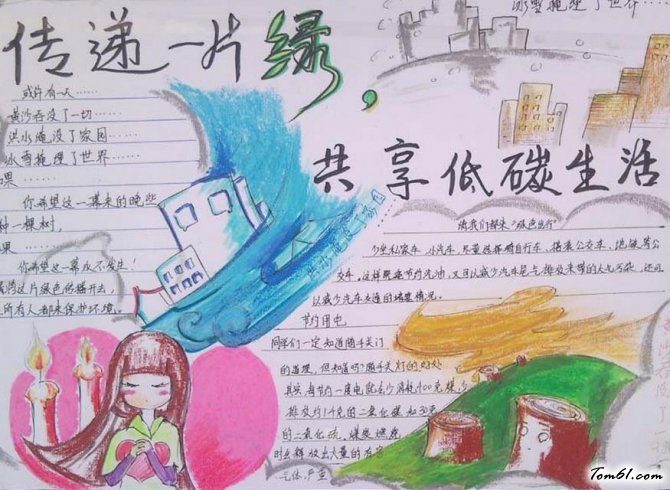 传递一片绿，
共享低碳生活
冰雪掩埋了世界……
或许有一天……
黄沙吞没了一切……
洪水淹没了家园……
冰雪掩埋了世界……
果……
你希望这一幕来的晚些
种一棵树，
果……
你希望这一幕永不发生！
这片绿色传播开去，
所有人都来保护环境。
让我们探索"绿色出行"
少坐私家车、小汽车，尽量选择骑自行车、搭乘公交车、地铁等公
交车。这样既能节约汽油，又可以减少汽车尾气排放带来的大气污染，还可
以减少汽车交通的堵塞情况。
节约用电
同学们一定知道随手关门
的道理，但知道吗？随手关灯的好处
其实每节约一度电就减少消耗400克煤，少
排放约1千克的二氧化碳和30克
的二氧化硫，煤炭燃烧
时会释放出大量的有害
气体，严重
Tom61.com